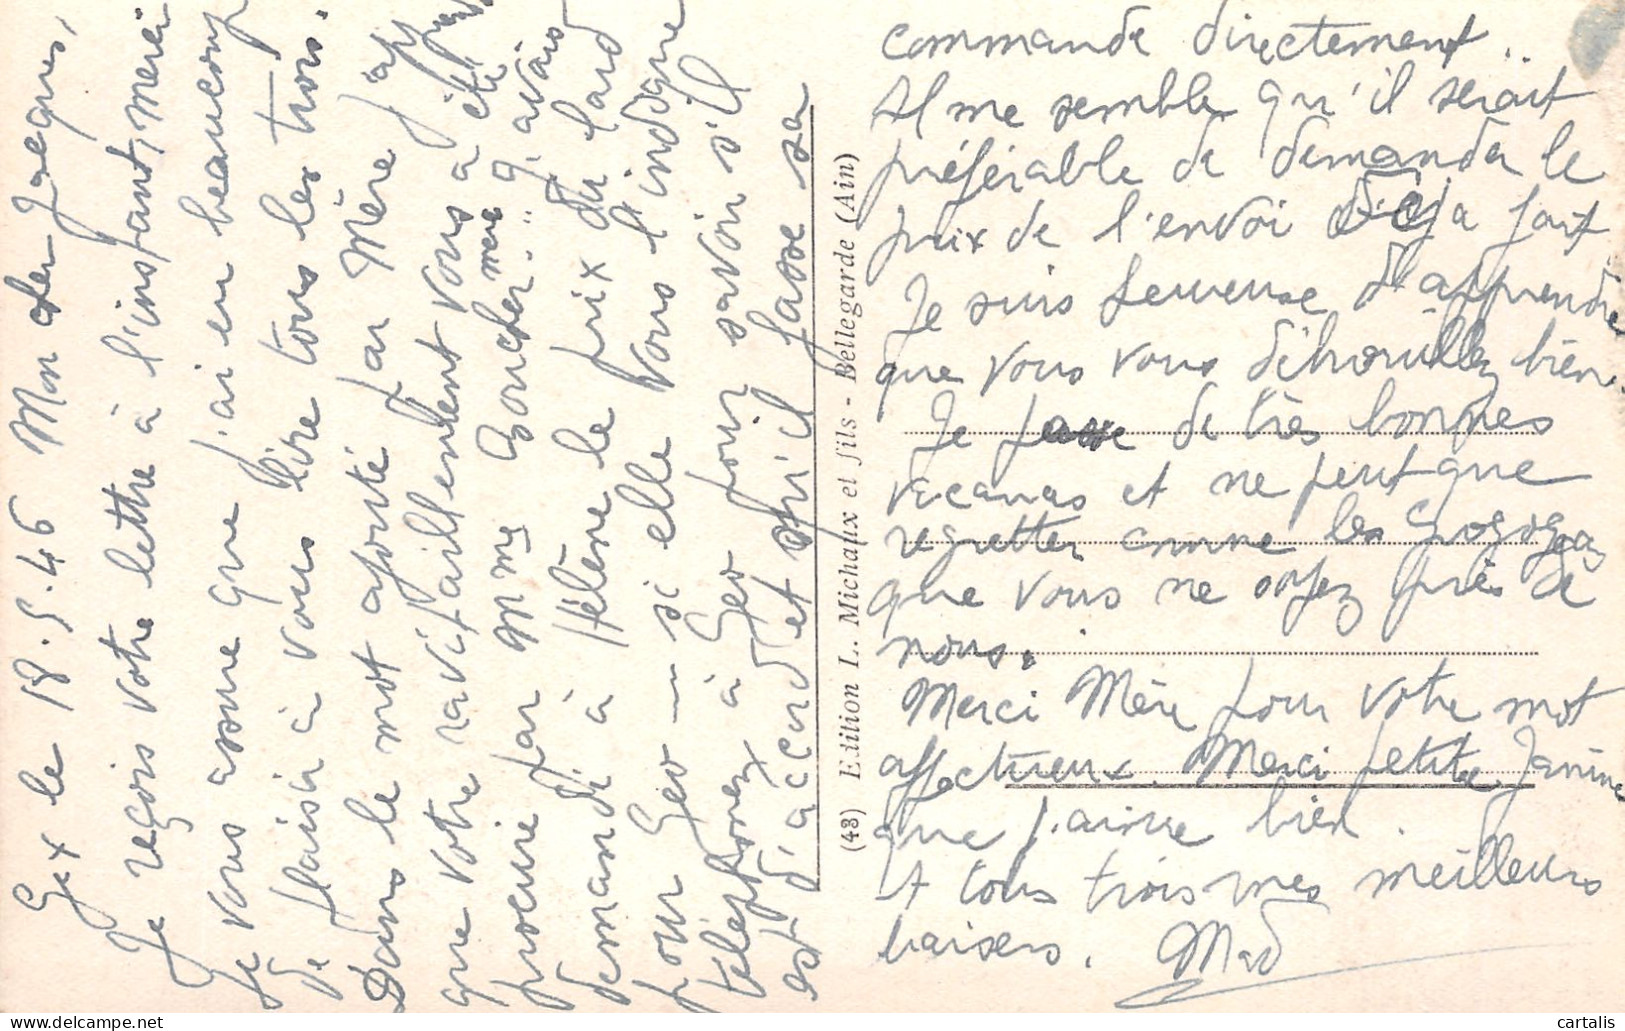 Gex le 18.9.46 Mon cher Jacques,
Je reçois votre lettre à l'instant, merci
Je vous assure que j'ai eu beaucoup
de plaisir à vous lire tous les trois.
Dans le mot ajouté par Mère j'ap
que votre ravitaillement vous a été
procuré par Mme Goucher. J'avais
demandé à Hélène le prix du lard
pour Geo — si elle vous l'indique
téléphonez à Geo pour savoir s'il
est d'accord et qu'il fasse sa
(43) Edition L. Michaux et fils - Bellegarde (Ain)
commande directement..
Il me semble qu'il serait
préférable de demander le
prix de l'envoi déjà fait
Je suis heureuse d'apprendre
que vous vous débrouillez bien.
Je passe de très bonnes
vacances et ne peut que
regretter comme les
que vous ne soyez près de
nous.
Merci Mère pour votre mot
affectueux. Merci petite Janine
que j'aime bien.
Et tous trois mes meilleurs
baisers. Mad
cartalis